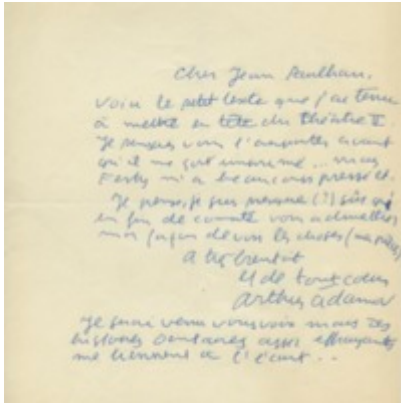 Cher Jean Paulhan,
Voici le petit texte que j'ai tenu
à mettre en tête du théâtre II.
Je pensais vous l'apporter avant
qu'il ne soit imprimé... mais
Festy m'a beaucoup pressé et.
Je pense, je suis même (?) sûr qu'
en fin de compte vous admettrez
mon façon de voir les choses (ma pièce)
A très bientôt
et de tout cœur
Arthur Adamov
Je serai venu vous voir mais des
histoires dentaires assez effrayantes
me tiennent à l'écart..